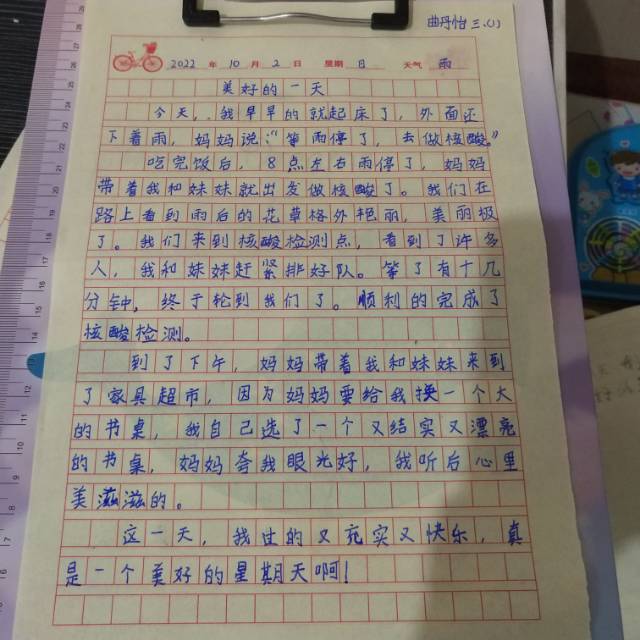 曲丹怡 三.(1)
2022 年 10 月 2 日 星期 日 天气 雨
美好的一天
今天,我早早的就起床了,外面还
下着雨,妈妈说:“等雨停了,去做核酸。”
吃完饭后,8点左右雨停了,妈妈
带着我和妹妹就出发做核酸了。我们在
路上看到雨后的花草格外艳丽,美丽极
了。我们来到核酸检测点,看到了许多
人,我和妹妹赶紧排好队。等了有十几
分钟,终于轮到我们了。顺利的完成了
核酸检测。
到了下午,妈妈带着我和妹妹来到
了家具超市,因为妈妈要给我换一个大
的书桌,我自己选了一个又结实又漂亮
的书桌,妈妈夸我眼光好,我听后心里
美滋滋的。
这一天,我过的又充实又快乐,真
是一个美好的星期天啊!